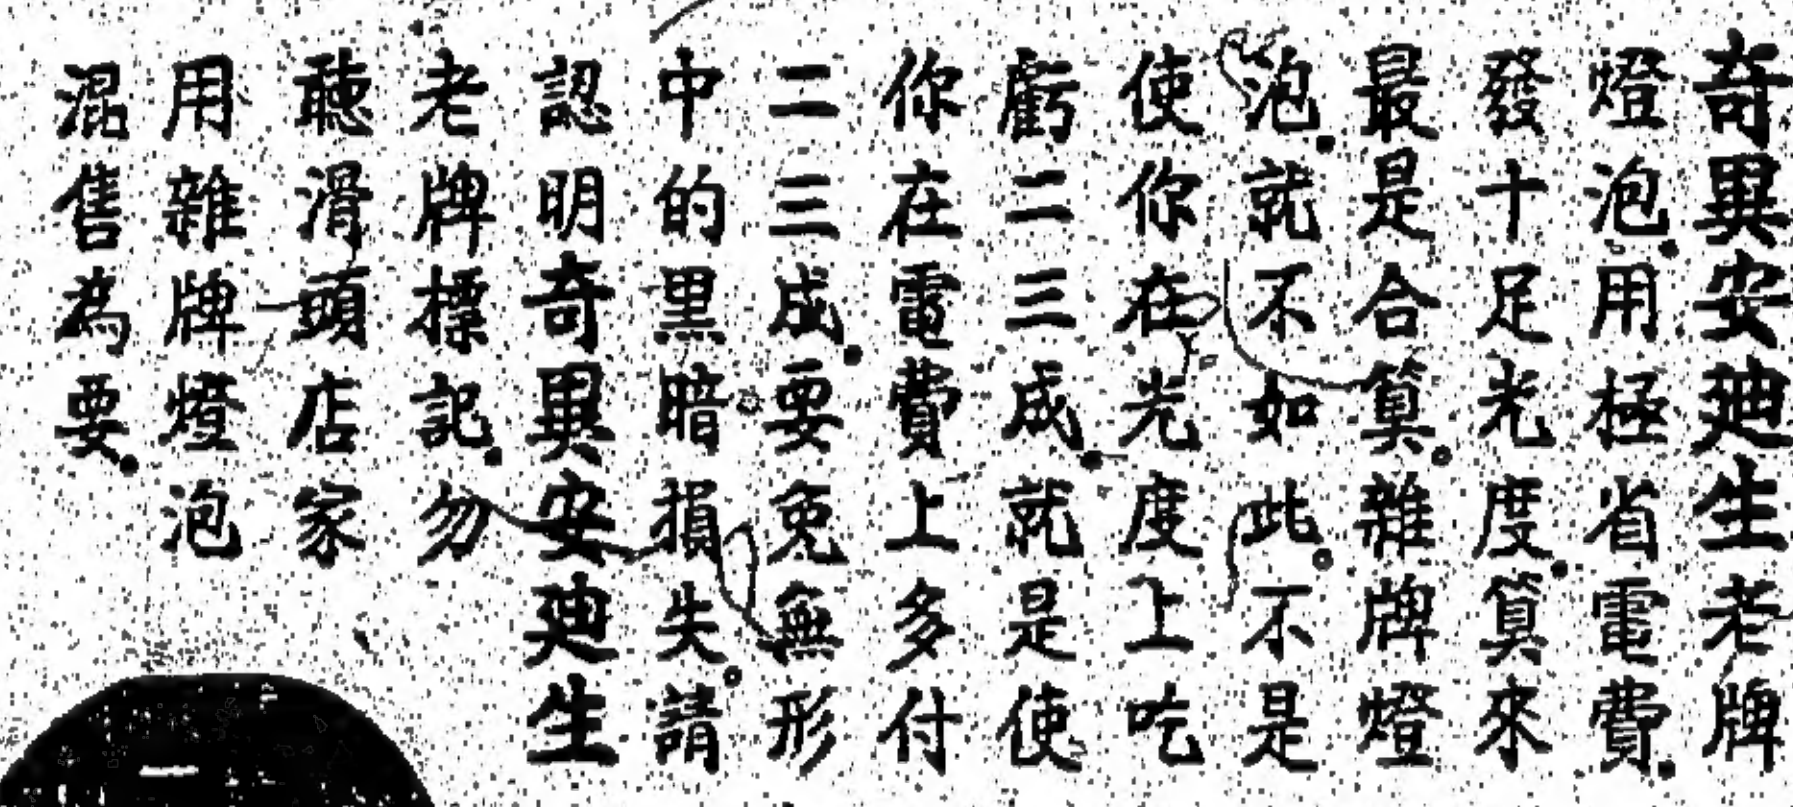 奇異安廸生老牌
燈泡.用極省電費.
發十足光度.算來
最是合算。雜牌燈
泡.就不如此。不是
使你在光度上吃
虧二三成.就是使
你在電費上多付
二三成.要免無形
中的黑暗損失。請
認明奇異安廸生
老牌標記.勿
聽滑頭店家
用雜牌燈泡
混售為要.